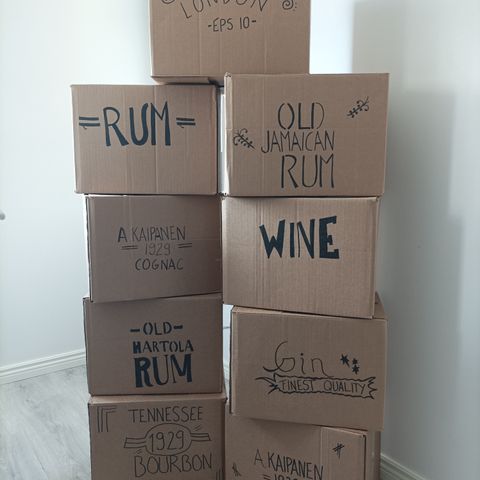 LONDON
-EPS 10-
=RUM=
OLD
JAMAICAN
RUM
A KAIPANEN
1929
COGNAC
WINE
-OLD-
HARTOLA
RUM
Gin
FINEST QUALITY
TENNESSEE
1929
BOURBON
A.KAIPANEN
1929